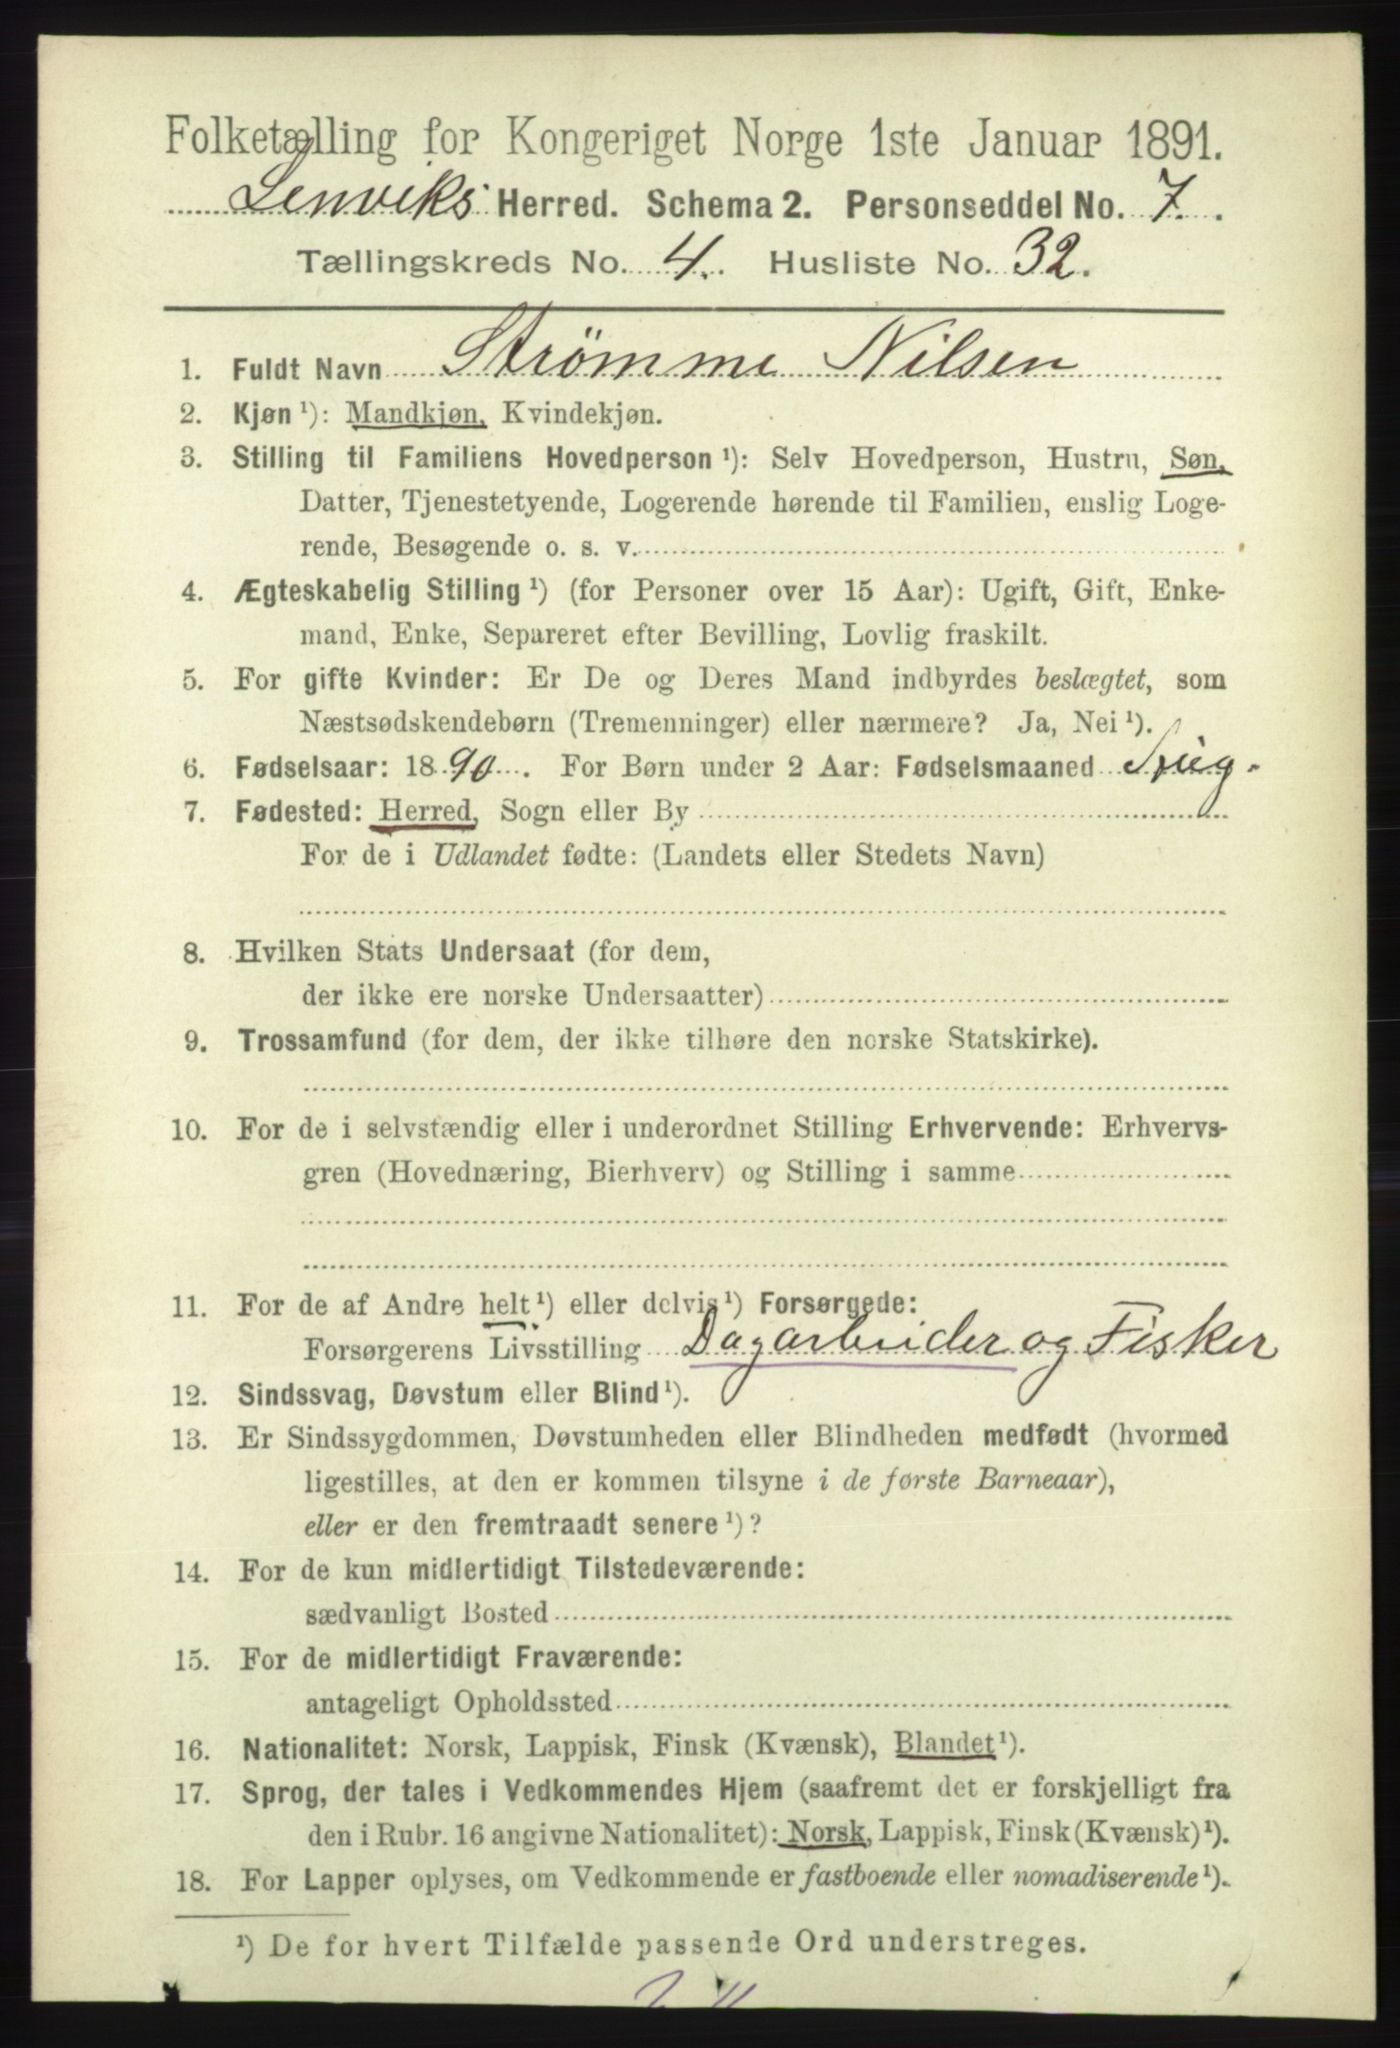 Folketælling for Kongeriget Norge 1ste Januar 1891.
Lenviks Herred. Schema 2. Personseddel No. 7.
Tællingskreds No. 4. Husliste No. 32.
1. Fuldt Navn Strømme Nilsen
2. Kjøn ¹): Mandkjøn, Kvindekjøn.
3. Stilling til Familiens Hovedperson ¹): Selv Hovedperson, Hustru, Søn,
Datter, Tjenestetyende, Logerende hørende til Familien, enslig Loge-
rende, Besøgende o. s. v.
4. Ægteskabelig Stilling ¹) (for Personer over 15 Aar): Ugift, Gift, Enke-
mand, Enke, Separeret efter Bevilling, Lovlig fraskilt.
5. For gifte Kvinder: Er De og Deres Mand indbyrdes beslægtet, som
Næstsødskendebørn (Tremenninger) eller nærmere? Ja, Nei ¹).
6. Fødselsaar: 1890. For Børn under 2 Aar: Fødselsmaaned
7. Fødested: Herred, Sogn eller By
For de i Udlandet fødte: (Landets eller Stedets Navn)
8. Hvilken Stats Undersaat (for dem,
der ikke ere norske Undersaatter)
9. Trossamfund (for dem, der ikke tilhøre den norske Statskirke).
10. For de i selvstændig eller i underordnet Stilling Erhvervende: Erhvervs-
gren (Hovednæring, Bierhverv) og Stilling i samme
11. For de af Andre helt ¹) eller delvis ¹) Forsørgede:
Forsørgerens Livsstilling Dagarbeider og Fisker
12. Sindssvag, Døvstum eller Blind ¹).
13. Er Sindssygdommen, Døvstumheden eller Blindheden medfødt (hvormed
ligestilles, at den er kommen tilsyne i de første Barneaar),
eller er den fremtraadt senere ¹)?
14. For de kun midlertidigt Tilstedeværende:
sædvanligt Bosted
15. For de midlertidigt Fraværende:
antageligt Opholdssted
16. Nationalitet: Norsk, Lappisk, Finsk (Kvænsk), Blandet ¹).
17. Sprog, der tales i Vedkommendes Hjem (saafremt det er forskjelligt fra
den i Rubr. 16 angivne Nationalitet): Norsk, Lappisk, Finsk (Kvænsk) ¹).
18. For Lapper oplyses, om Vedkommende er fastboende eller nomadiserende ¹).
¹) De for hvert Tilfælde passende Ord understreges.